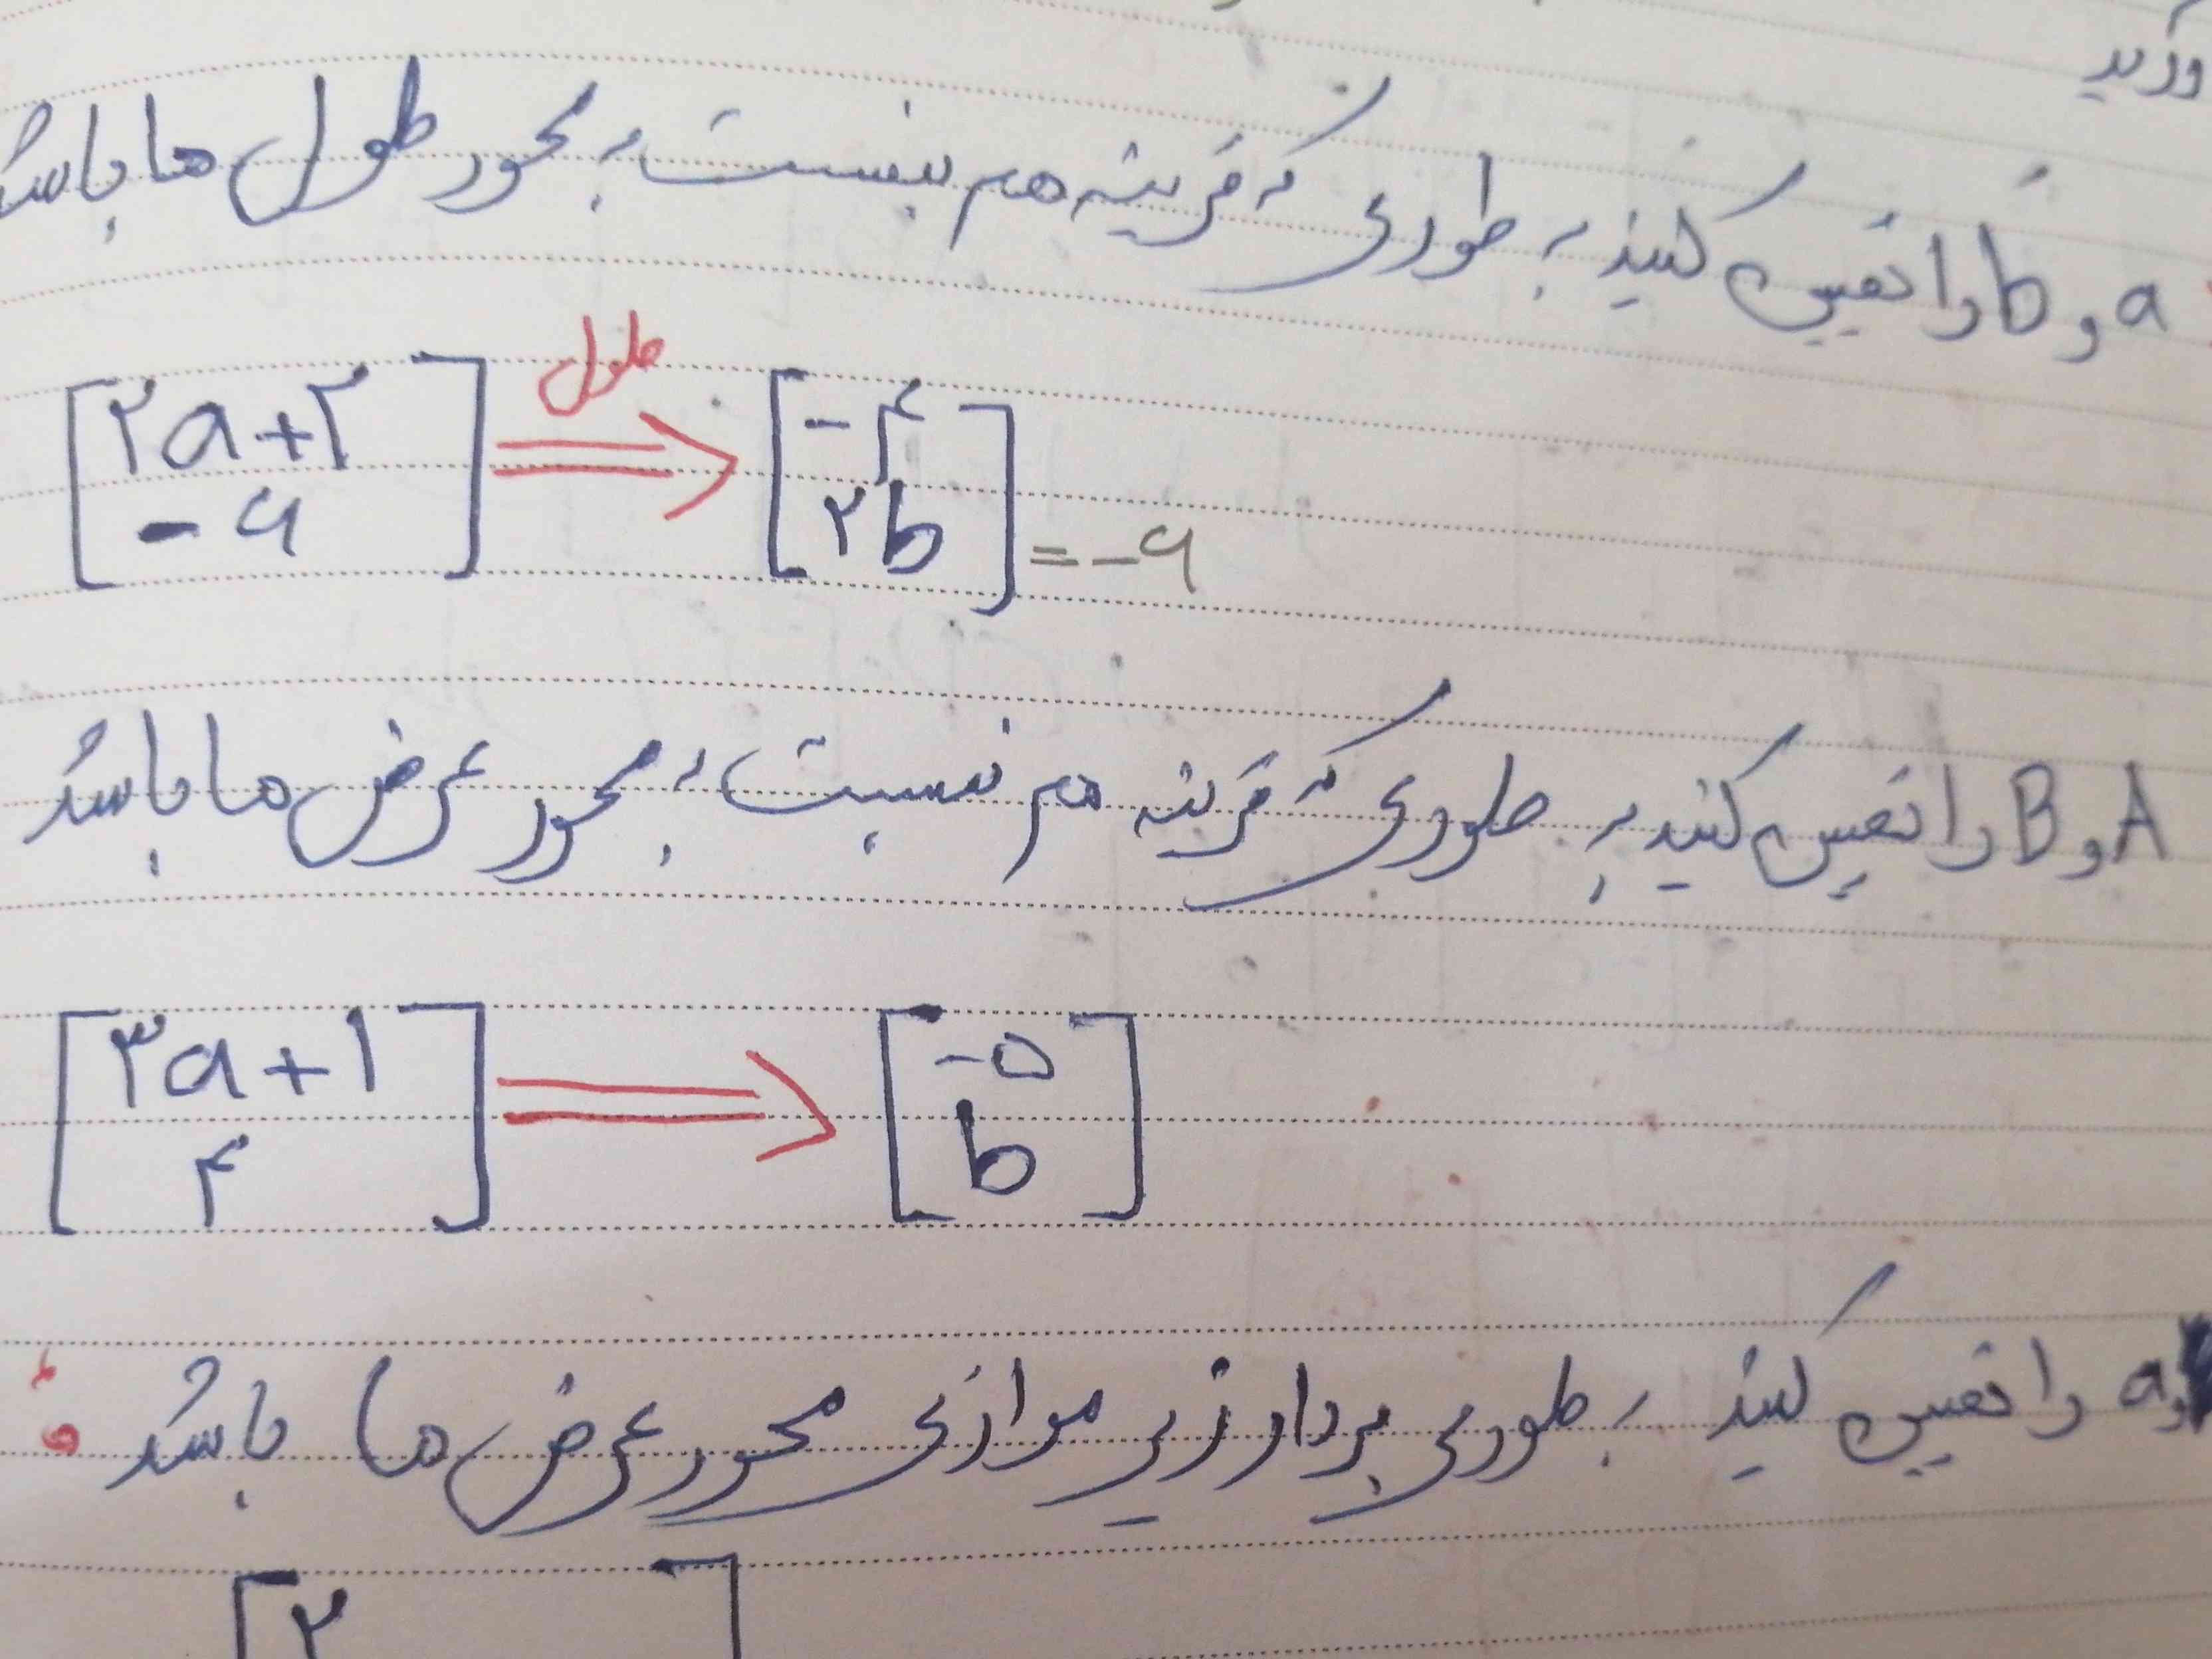 ورید
a و b را تعیین کنید به طوری که قرینه هم بنسبت به محور طول ها باشد
طول
[۲a+۲ -۶] ⇒ [-۴ ۲b] = -۶
A و B را تعیین کنید به طوری که قرینه هم نسبت به محور عرض ها باشد
[۳a+۱ ۴] ⇒ [-۵ b]
a را تعیین کنید به طوری بردار زیر موازی محور عرض ها باشد
[۲ ]